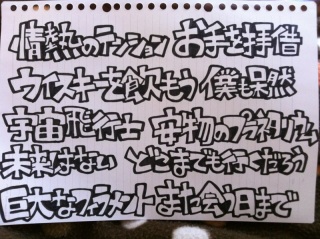 情熱のテンション お手を拝借
ウィスキーを飲もう 僕も呆然
宇宙飛行士 安物のプラネタリウム
未来はない どこまでも行くだろう
巨大なフィラメント また会う日まで